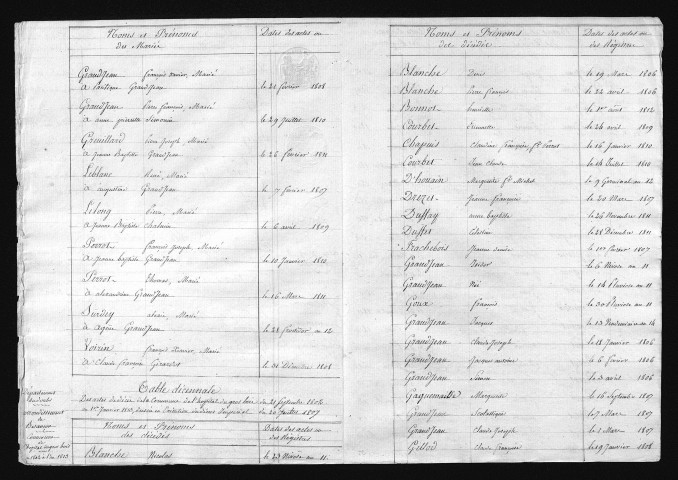 Noms et Prénoms des Mariés
Dates des actes ou
Grandjean françois xavier, Marié
à Grandjean
le 21 février 1808
Grandjean Pierre françois, Marié
à anne Simonin
le 29 Juillet 1810
Greuillard Pierre Joseph, Marié
à Jeanne Baptiste Grandjean
le 26 février 1811
Leblanc René, Marié
à augustine Grandjean
le 7 février 1807
Lelong Pierre, Marié
à Jeanne Baptiste
le 6 avril 1809
Perrot françois Joseph, Marié
à Jeanne baptiste Grandjean
le 10 Janvier 1810
Perrot Thomas, Marié
à alexandrine Grandjean
le 16 Mars 1811
Surdey alexis, Marié
à Grandjean
le 28 fructidor an 12
Voirin françois Xavier, Marié
à Claude françoise Girardet
le 31 Décembre 1808
Table décennale
Des actes de décès de la Commune de l'hôpital du gros bois du 21 Septembre 1802
au 1er Janvier 1813, dressée en Exécution du décret Impérial du 20 Juillet 1807
Département
du Doubs
arrondissement
de
Besançon
Commune
de
Noms et Prénoms
des décédés
Dates des actes ou
des Registres
Blanche Nicolas
le 23 Nivôse an 11
Noms et Prénoms
des décédés
Dates des actes ou
des Registres
Blanche Denis le 19 Mars 1806
Blanche Pierre françois le 22 avril 1806
Bonnot le 1er août 1812
Courbet le 26 avril 1809
Chapuis Claudine françoise, fe le 16 Janvier 1810
Courbet Jean Claude le 14 Juillet 1810
D'houain Marguerite fe Michel le 9 Germinal an 12
Drezet Jeanne françoise le 29 Mars 1807
Duffay anne baptiste le 26 Novembre 1811
Duffet Célestine le 28 Décembre 1811
Frachebois Jeanne le 1er février 1807
Grandjean Isidor le 6 Nivôse an 11
Grandjean Née le 14 Pluviôse an 11
Goux françois le 30 Pluviôse an 11
Grandjean Jacques le 13 Vendémiaire an 14
Grandjean Claude Joseph le 18 Janvier 1806
Grandjean Jacques antoine le 6 février 1806
Grandjean le 3 avril 1806
Gaguemaille Marguerite le 16 Septembre 1807
Grandjean Scolastique le 7 Mars 1807
Grandjean Claude Joseph le 1 Mars 1807
Gillod Claude françoise le 19 Janvier 1808